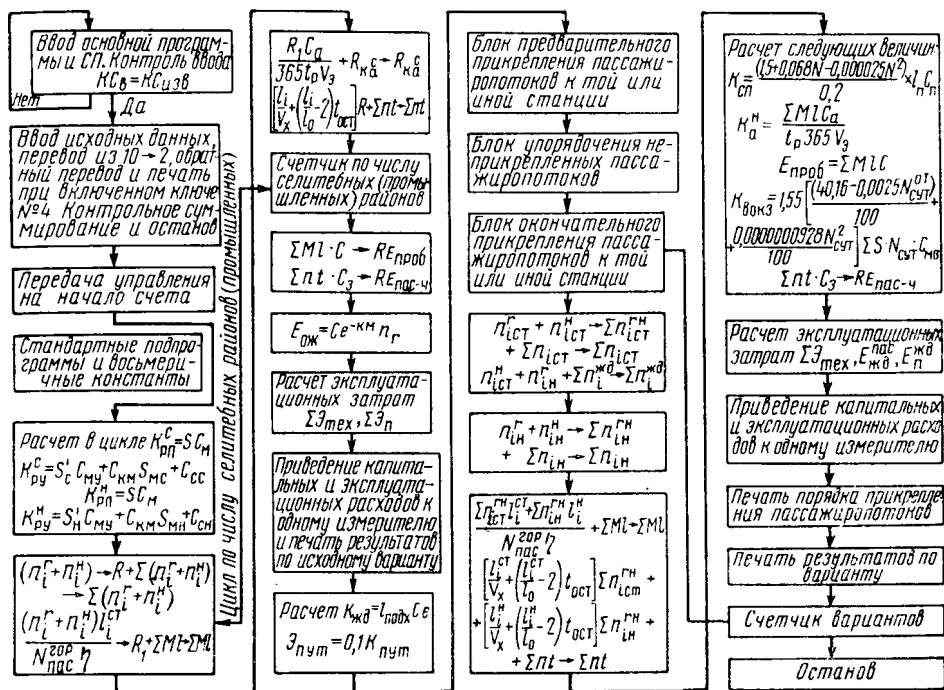 Ввод основной програм-
мы и СП. Контроль ввода
КСв = КСизв
Нет
Да
Ввод исходных данных,
перевод из 10→2, обрат-
ный перевод и печать
при включенном ключе
№4 Контрольное сум-
мирование и останов
Передача управления
на начало счета
Стандартные подпро-
граммы и восьмерич-
ные константы
Расчет в цикле K^c_рп = SC_м
K^c_ру = S'_c C_му + C_км S_мс + C_сс
K^н_рп = SC_м
K^н_ру = S'_н C_му + C_км S_мн + C_сн
(n^г_i + n^н_i) → R + Σ(n^г_i + n^н_i)
→ Σ(n^г_i + n^н_i)
(n^г_i + n^н_i) l^ст_i / N^гор_пас η → R_1 + ΣMl → ΣMl
Цикл по числу селитебных районов (промышленных)
R_1 C_a / 365 t_p V_э + R_к^c_a → R_к^c_a
[l_i / V_x + (l_i / l_0 - 2) t_ост] R + Σnt → Σnt
Счетчик по числу
селитебных (промы-
шленных) районов
ΣMl · C → RE_проб
Σnt · C_э → RE_пас-ч
E_ож = Ce^-км n_г
Расчет эксплуата-
ционных затрат
ΣЭ_тех, ΣЭ_п
Приведение капиталь-
ных и эксплуатацион-
ных расходов к
одному измерителю
и печать результатов
по исходному варианту
Расчет K_жд = l_подх C_ε
Э_пут = 0,1 K_пут
Блок предварительного
прикрепления пассажи-
ропотоков к той или
иной станции
Блок упорядочения не-
прикрепленных пасса-
жиропотоков
Блок окончательного
прикрепления пасса-
жиропотоков к той
или иной станции
n^г_iст + n^н_iст → Σn^гн_iст
+ Σn_iст → Σn_iст
n^н_iст + n^н_iн + Σn^жд_i → Σn^жд_i
n^г_iн + n^н_iн → Σn^гн_iн
+ Σn_iн → Σn_iн
Σn^гн_iст l^ст_i + Σn^гн_iн l^н_i / N^гор_пас η + ΣMl → ΣMl
[l^ст_i / V_x + (l^ст_i / l_0 - 2) t_ост] Σn^гн_iст +
+ [l^н_i / V_x + (l^н_i / l_0 - 2) t_ост] Σn^гн_iн +
+ Σnt → Σnt
Расчет следующих величин:
K_сп = (1,5+0,068N-0,000025N^2) / 0,2 × l_п C_п
K^н_a = ΣMlC_a / t_p 365 V_э
E_проб = ΣMlC
K_вокз = 1,55 [(40,16-0,0025N^от_сут) / 100 +
+ 0,0000000928N^2_сут / 100] ΣS·N_сут·C_мв
Σnt·C_э → RE_пас-ч
Расчет эксплуатационных
затрат ΣЭ_тех, E^пас_жд, E^жд_п
Приведение капитальных
и эксплуатационных расхо-
дов к одному измерителю
Печать порядка прикрепле-
ния пассажиропотоков
Печать результатов по
варианту
Счетчик вариантов
Останов